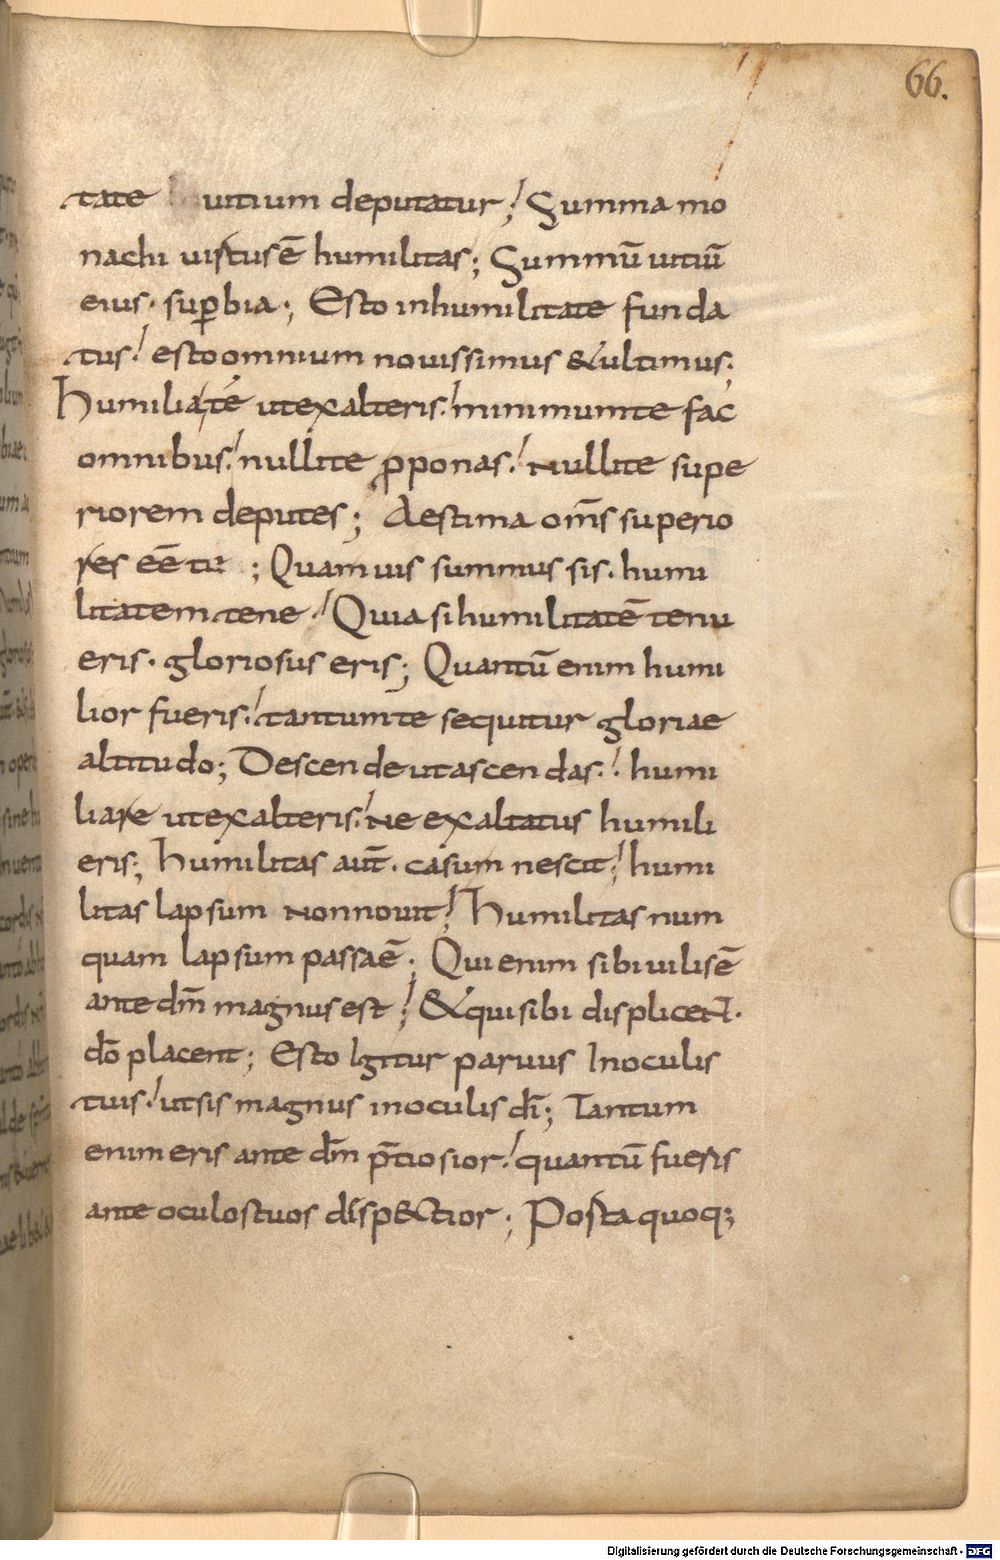 66.
tate uitium deputatur; Summa mo
nachi uirtus ē humilitas; Summū uitiū
eius· sup̄bia; Esto in humilitate funda
tus; esto omnium nouissimus & ultimus;
Humilia te ut exalteris; minimum te fac
omnibus; nulli te p̄ponas; Nulli te supe
riorem deputes; Aestima om̄s superio
res eē tu ; Quamuis summus sis· humi
litatem tene; Quia si humilitatē tenu
eris· gloriosus eris; Quantū enim humi
lior fueris; tantum te sequitur gloriae
altitudo; Descende ut ascendas; humi
liare ut exalteris; Ne exaltatus humili
eris; humilitas aut̄· casum nescit; humi
litas lapsum non nouit; Humilitas num
quam lapsum passa ē· Qui enim sibi uilis ē
ante dm̄ magnus est; & qui sibi displicent·
dō placent; Esto Igitur paruus In oculis
tuis; ut sis magnus in oculis dī; Tantum
enim eris ante dm̄ p̄tiosior; quantū fueris
ante oculos tuos disp&ctior; Porta quoq;
Digitalisierung gefördert durch die Deutsche Forschungsgemeinschaft - DFG